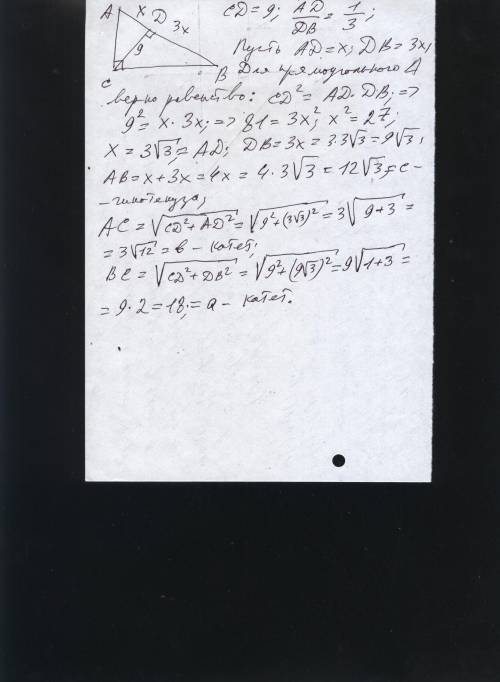 A x D 3x
9
C
B
CD = 9; AD/DB = 1/3;
Пусть AD = x; DB = 3x,
Для прямоугольного Δ
верно равенство: CD² = AD · DB; =>
9² = x · 3x; => 81 = 3x²; x² = 27;
x = 3√3 = AD; DB = 3x = 3·3√3 = 9√3;
AB = x + 3x = 4x = 4 · 3√3 = 12√3 = c -
- гипотенуза;
AC = √(CD² + AD²) = √(9² + (3√3)²) = 3√(9+3) =
= 3√12 = b - катет;
BC = √(CD² + DB²) = √(9² + (9√3)²) = 9√(1+3) =
= 9 · 2 = 18; = a - катет.